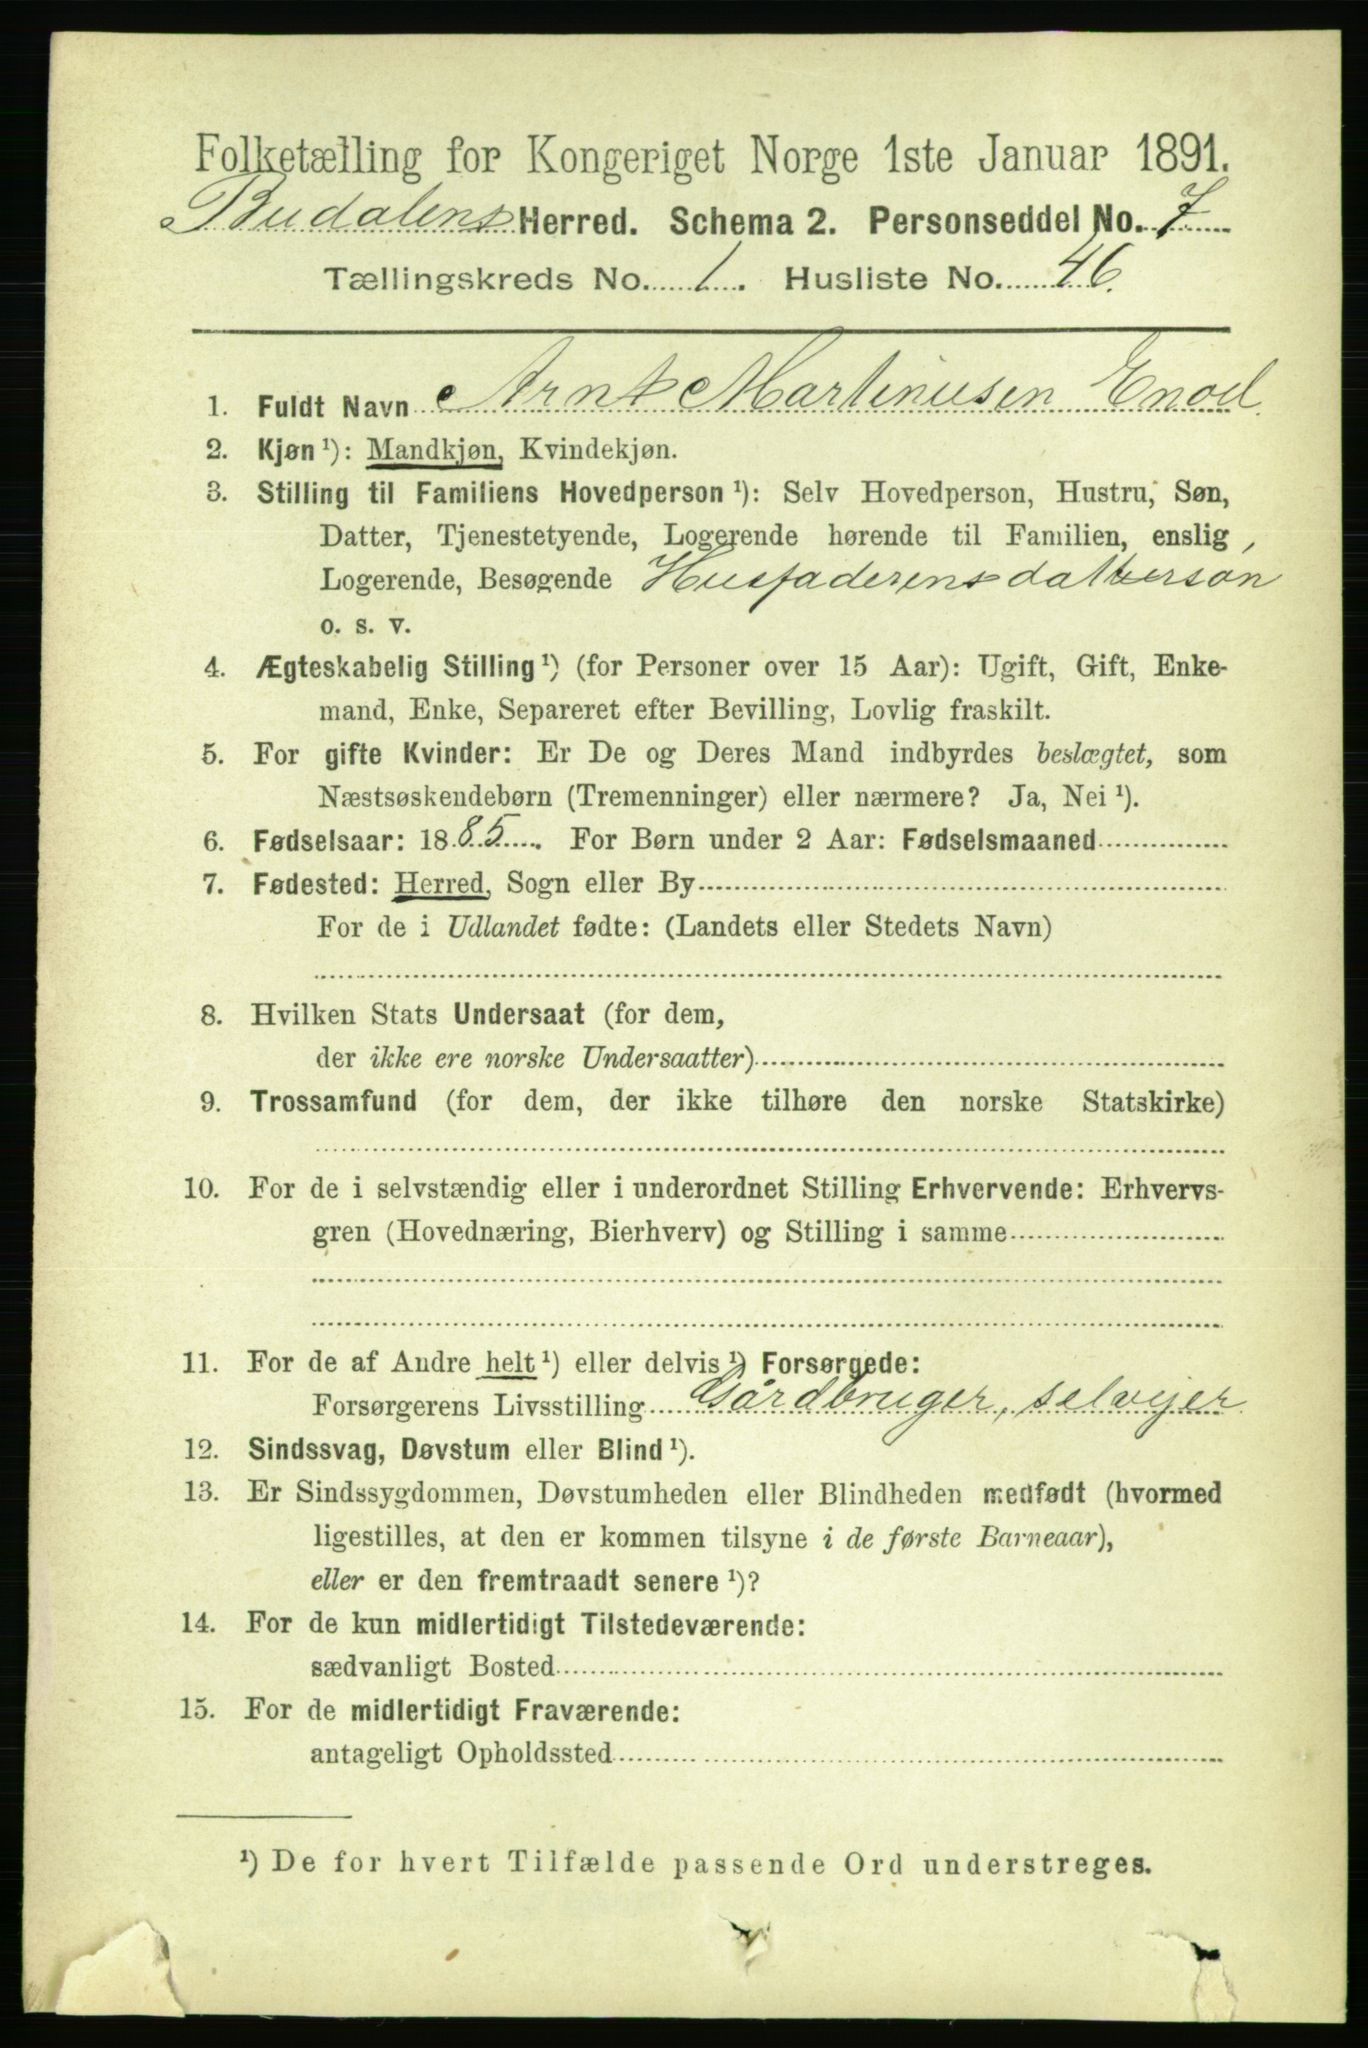 Folketælling for Kongeriget Norge 1ste Januar 1891.
Budalens Herred. Schema 2. Personseddel No. 7
Tællingskreds No. 1. Husliste No. 46.
1. Fuldt Navn Arnt Martinusen Enod
2. Kjøn ¹): Mandkjøn, Kvindekjøn.
3. Stilling til Familiens Hovedperson ¹): Selv Hovedperson, Hustru, Søn,
Datter, Tjenestetyende, Logerende hørende til Familien, enslig
Logerende, Besøgende Husfaderens dattersøn
o. s. v.
4. Ægteskabelig Stilling ¹) (for Personer over 15 Aar): Ugift, Gift, Enke-
mand, Enke, Separeret efter Bevilling, Lovlig fraskilt.
5. For gifte Kvinder: Er De og Deres Mand indbyrdes beslægtet, som
Næstsøskendebørn (Tremenninger) eller nærmere? Ja, Nei ¹).
6. Fødselsaar: 1885. For Børn under 2 Aar: Fødselsmaaned
7. Fødested: Herred, Sogn eller By
For de i Udlandet fødte: (Landets eller Stedets Navn)
8. Hvilken Stats Undersaat (for dem,
der ikke ere norske Undersaatter)
9. Trossamfund (for dem, der ikke tilhøre den norske Statskirke)
10. For de i selvstændig eller i underordnet Stilling Erhvervende: Erhvervs-
gren (Hovednæring, Bierhverv) og Stilling i samme
11. For de af Andre helt ¹) eller delvis ¹) Forsørgede:
Forsørgerens Livsstilling Gårdbruger, selvejer
12. Sindssvag, Døvstum eller Blind ¹).
13. Er Sindssygdommen, Døvstumheden eller Blindheden medfødt (hvormed
ligestilles, at den er kommen tilsyne i de første Barneaar),
eller er den fremtraadt senere ¹)?
14. For de kun midlertidigt Tilstedeværende:
sædvanligt Bosted
15. For de midlertidigt Fraværende:
antageligt Opholdssted
¹) De for hvert Tilfælde passende Ord understreges.